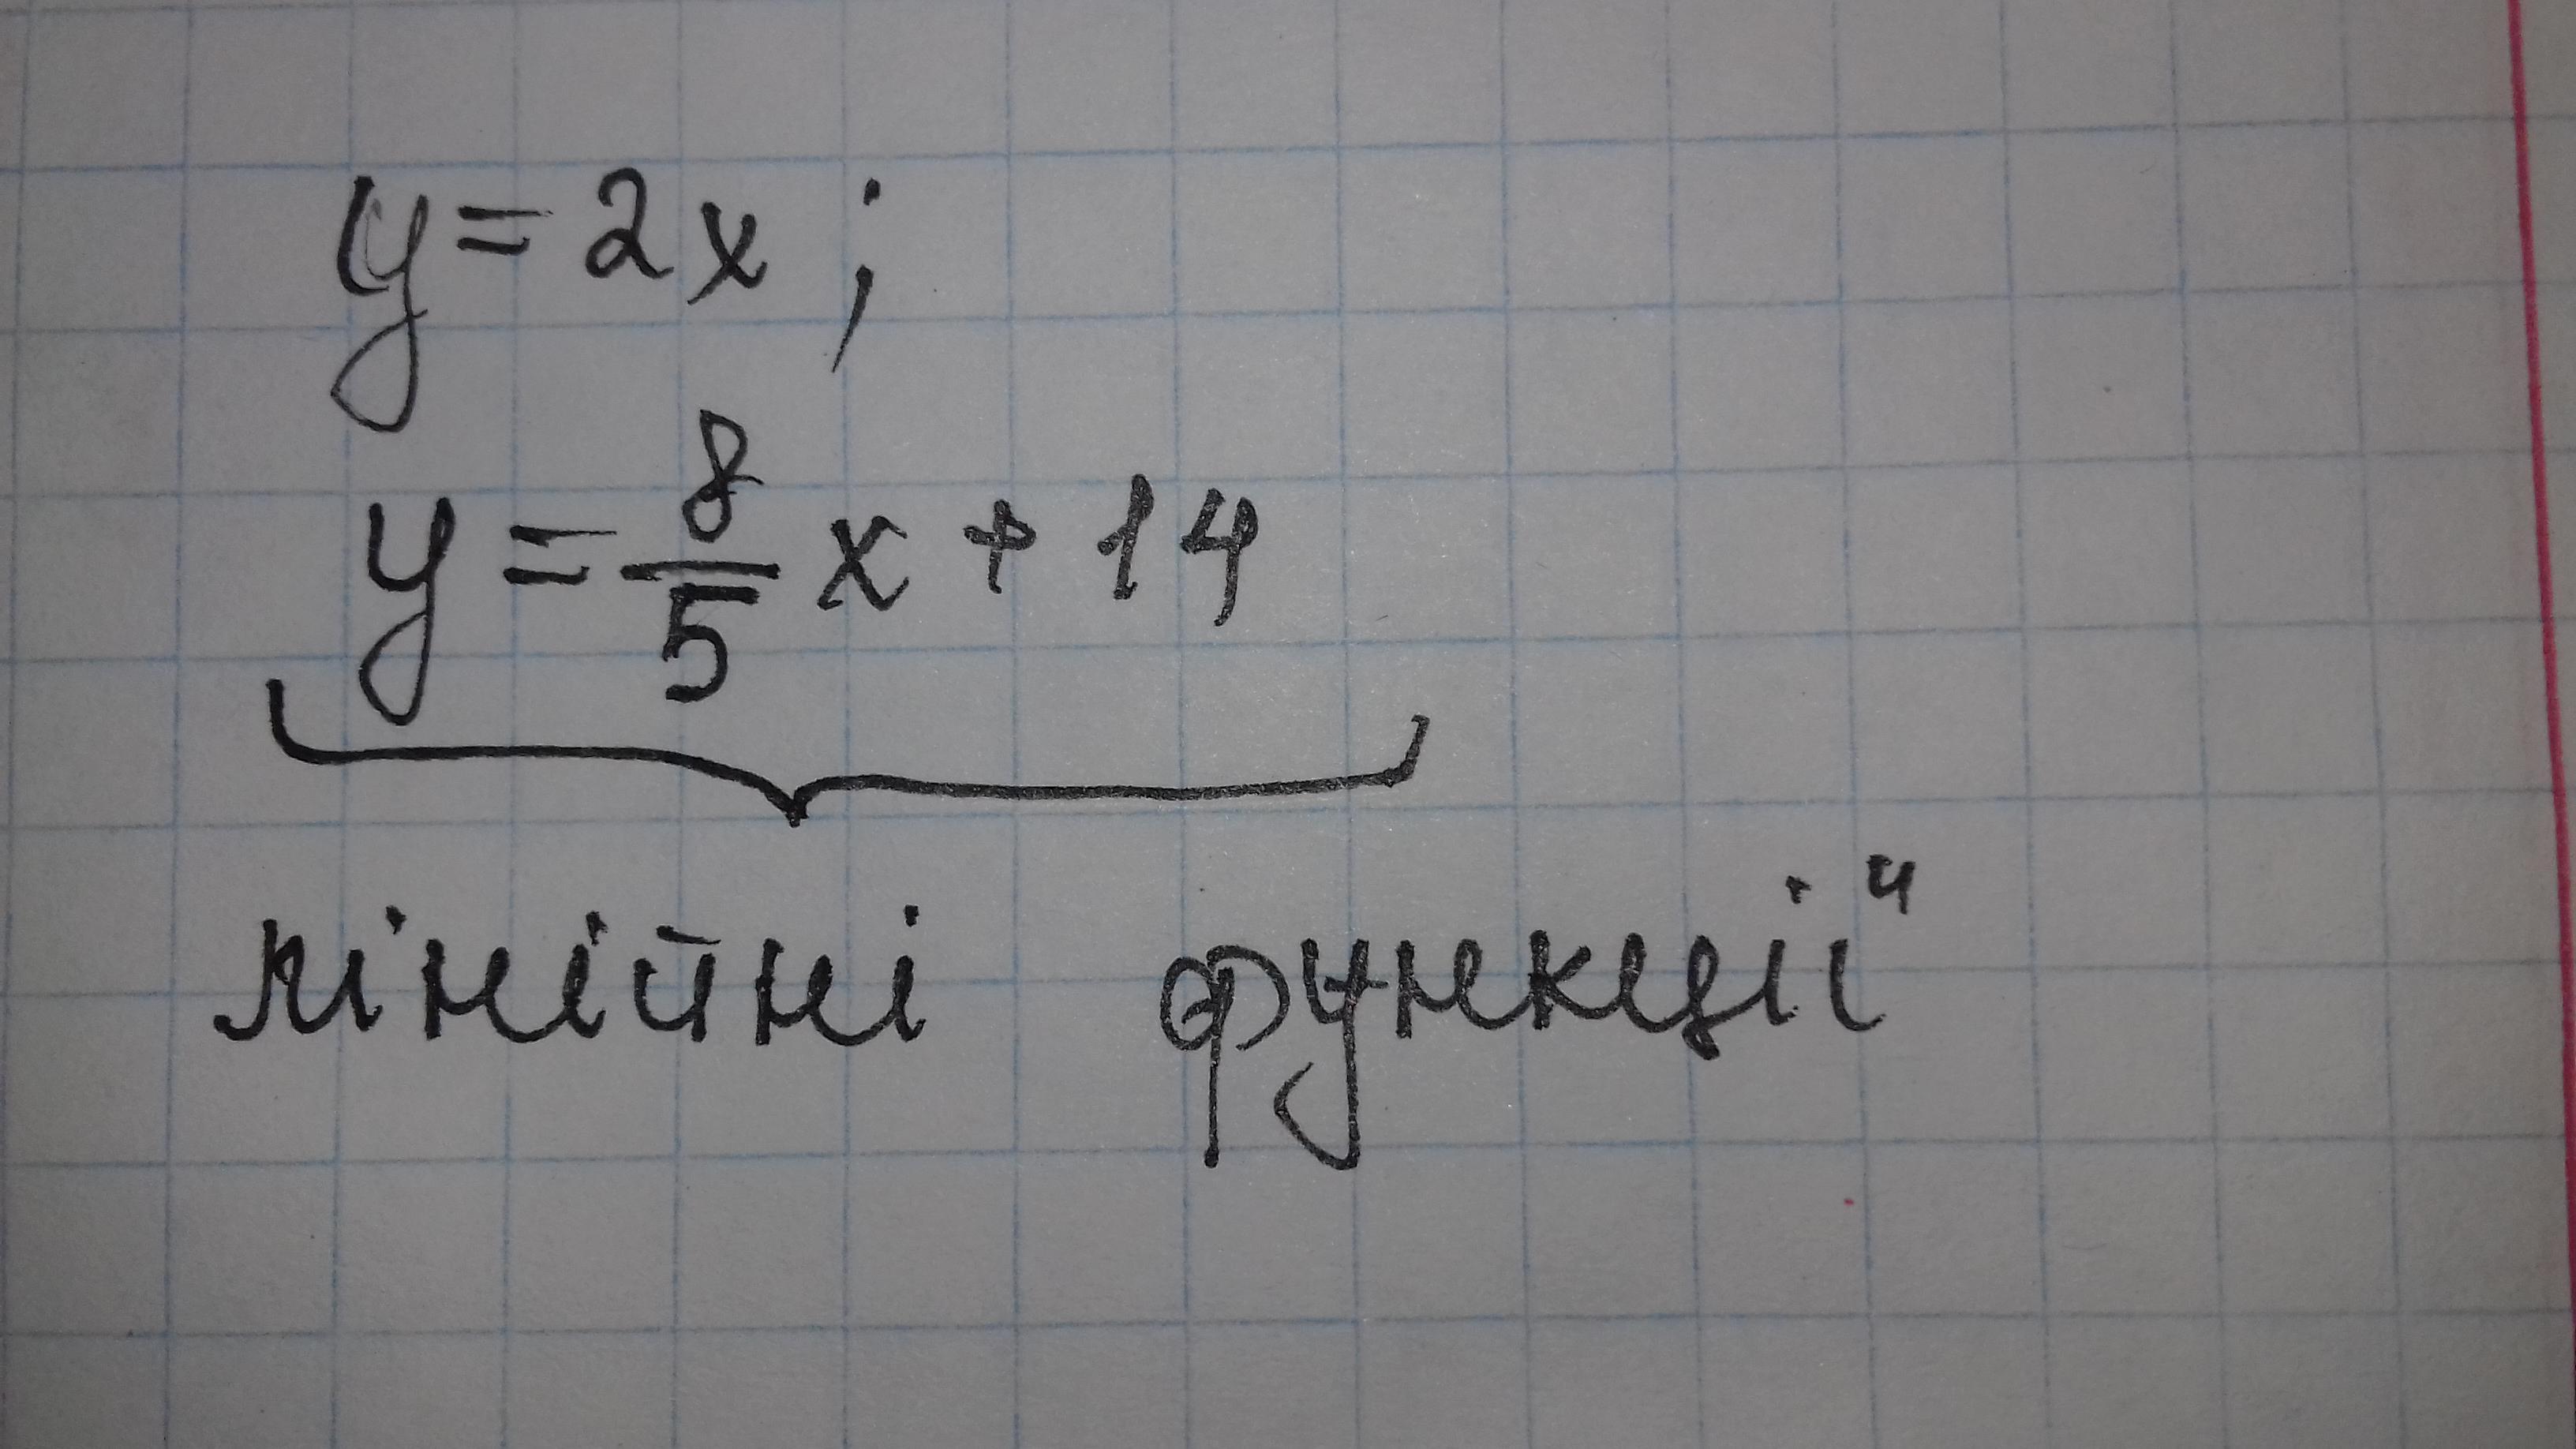 y = 2x;
y = 8/5 x + 14
лінійні функції